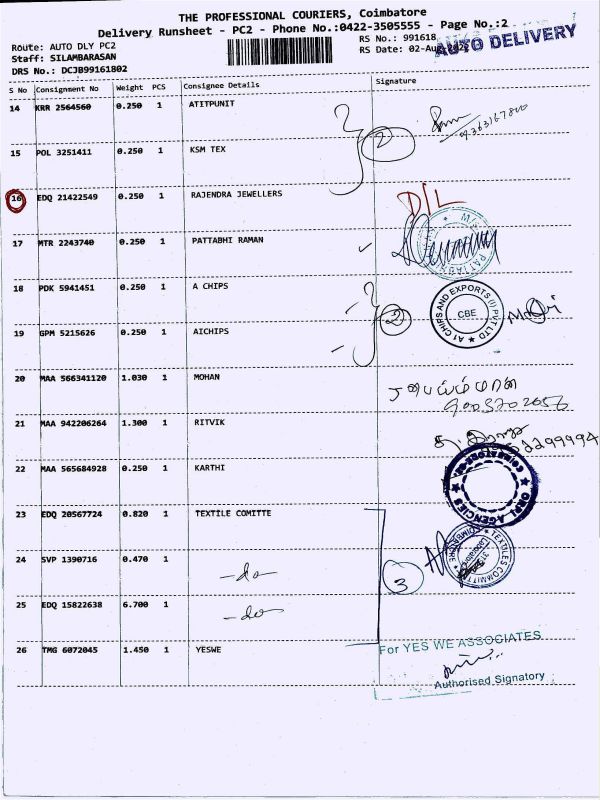 THE PROFESSIONAL COURIERS, Coimbatore
Delivery Runsheet - PC2 - Phone No.:0422-3505555 - Page No.:2
Route: AUTO DLY PC2
RS No.: 991618
AUTO DELIVERY
Staff: SILAMBARASAN
RS Date: 02-Aug
DRS No.: DCJB99161802
S No Consignment No Weight PCS Consignee Details Signature
14 KRR 2564560 0.250 1 ATITPUNIT
2
15 POL 3251411 0.250 1 KSM TEX
16 EDQ 21422549 0.250 1 RAJENDRA JEWELLERS
D/L
17 MTR 2243740 0.250 1 PATTABHI RAMAN
18 PDK 5941451 0.250 1 A CHIPS
2
A1 CHIPS AND EXPORTS (I) PVT LTD
CBE
19 GPM 5215626 0.250 1 AICHIPS
20 MAA 566341120 1.030 1 MOHAN
21 MAA 942206264 1.300 1 RITVIK
22 MAA 565684928 0.250 1 KARTHI
ORPI AGENCIES
COIMBATORE
23 EDQ 20567724 0.820 1 TEXTILE COMITTE
24 SVP 1390716 0.470 1 -do-
3
TEXTILES COMMITTEE
25 EDQ 15822638 6.700 1 -do-
26 TMG 6072045 1.450 1 YESWE
For YES WE ASSOCIATES
Authorised Signatory